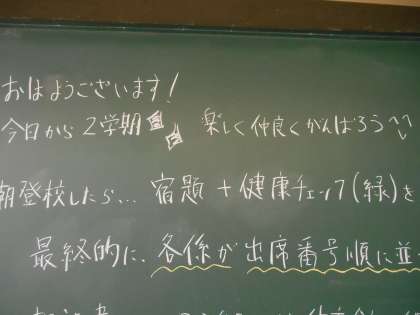 おはようございます!
今日から2学期 楽しく仲良くがんばろう^^
朝登校したら… 宿題+健康チェック(緑)を
最終的に、各係が出席番号順に並